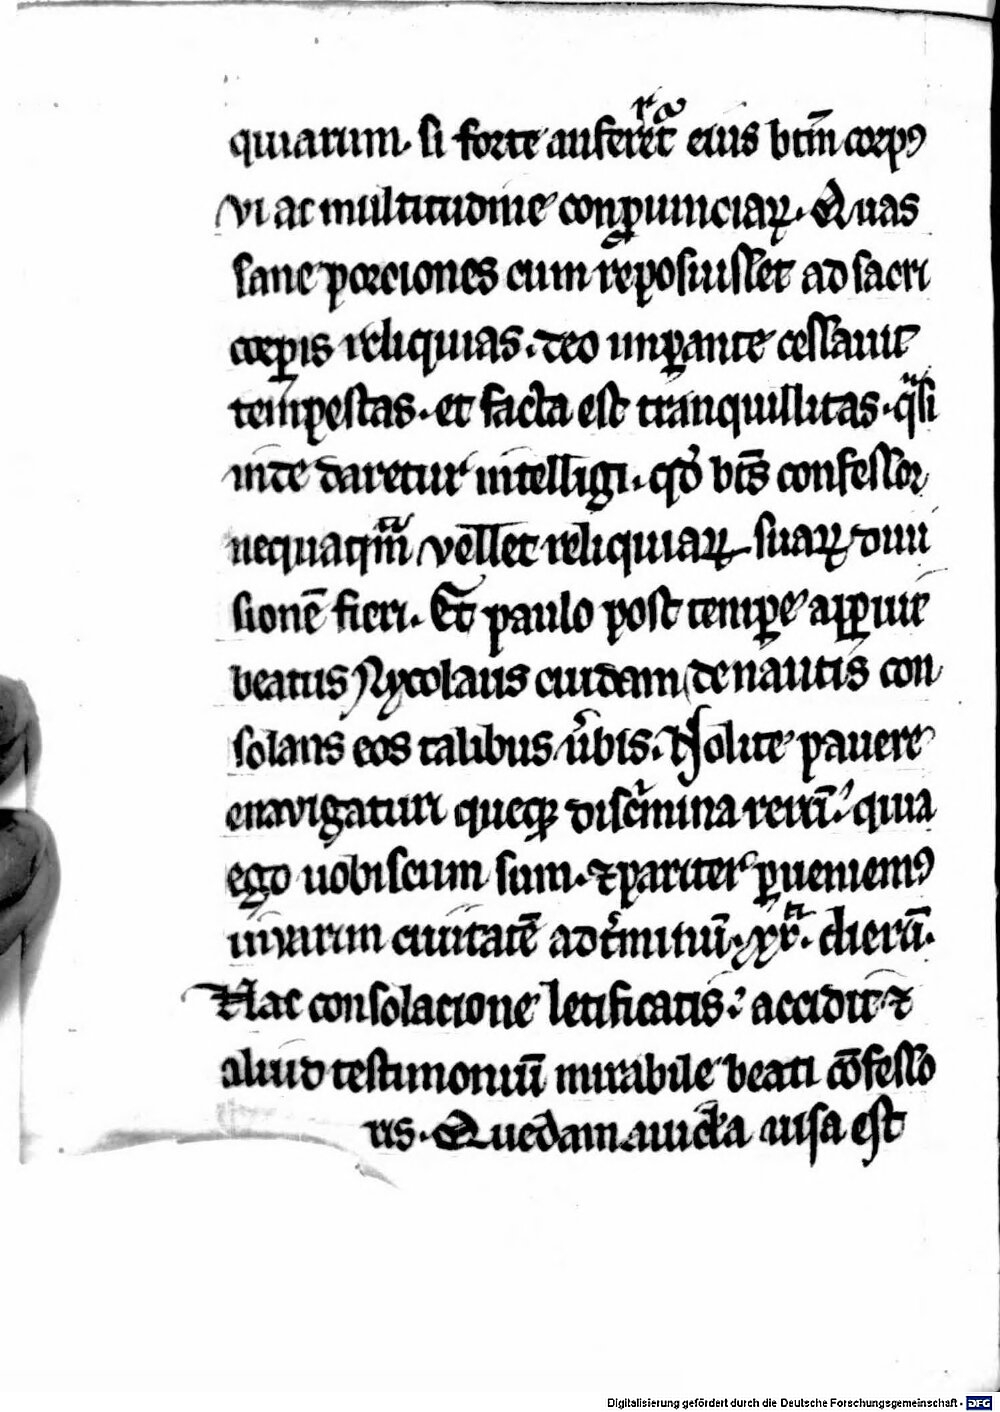 quiarum. si forte auferret᷒ eius btm̄ corpꝯ
vi ac multitudine conꝓuinciaꝝ. Quas
sane porciones cum reposuisset ad sacri
corꝑis reliquias. deo imꝑante cessauit
tempestas. et facta est tranquillitas. qͣsi
inde daretur intelligi. qd̓ bt̄s confessor
nequaqͣm vellet reliquiaꝝ suaꝝ diui
sionē fieri. Et paulo post temꝑe apꝑuit
beatus Nycolaus cuidam de nautis con
solans eos talibus v̓bis. Nolite pauere
enavigaturi queqꝫ discͥmina rerū. quia
ego uobiscum sum. ⁊ pariter ꝑueniemꝯ
vivarim ciuitatē ad t̓minū. xxͭⁱ. dierū.
Hac consolacione letificatis. accidit ⁊
aliud testimoniū mirabile beati cōfesso
ris. Quedam auicl̓a uisa est
Digitalisierung gefördert durch die Deutsche Forschungsgemeinschaft - DFG